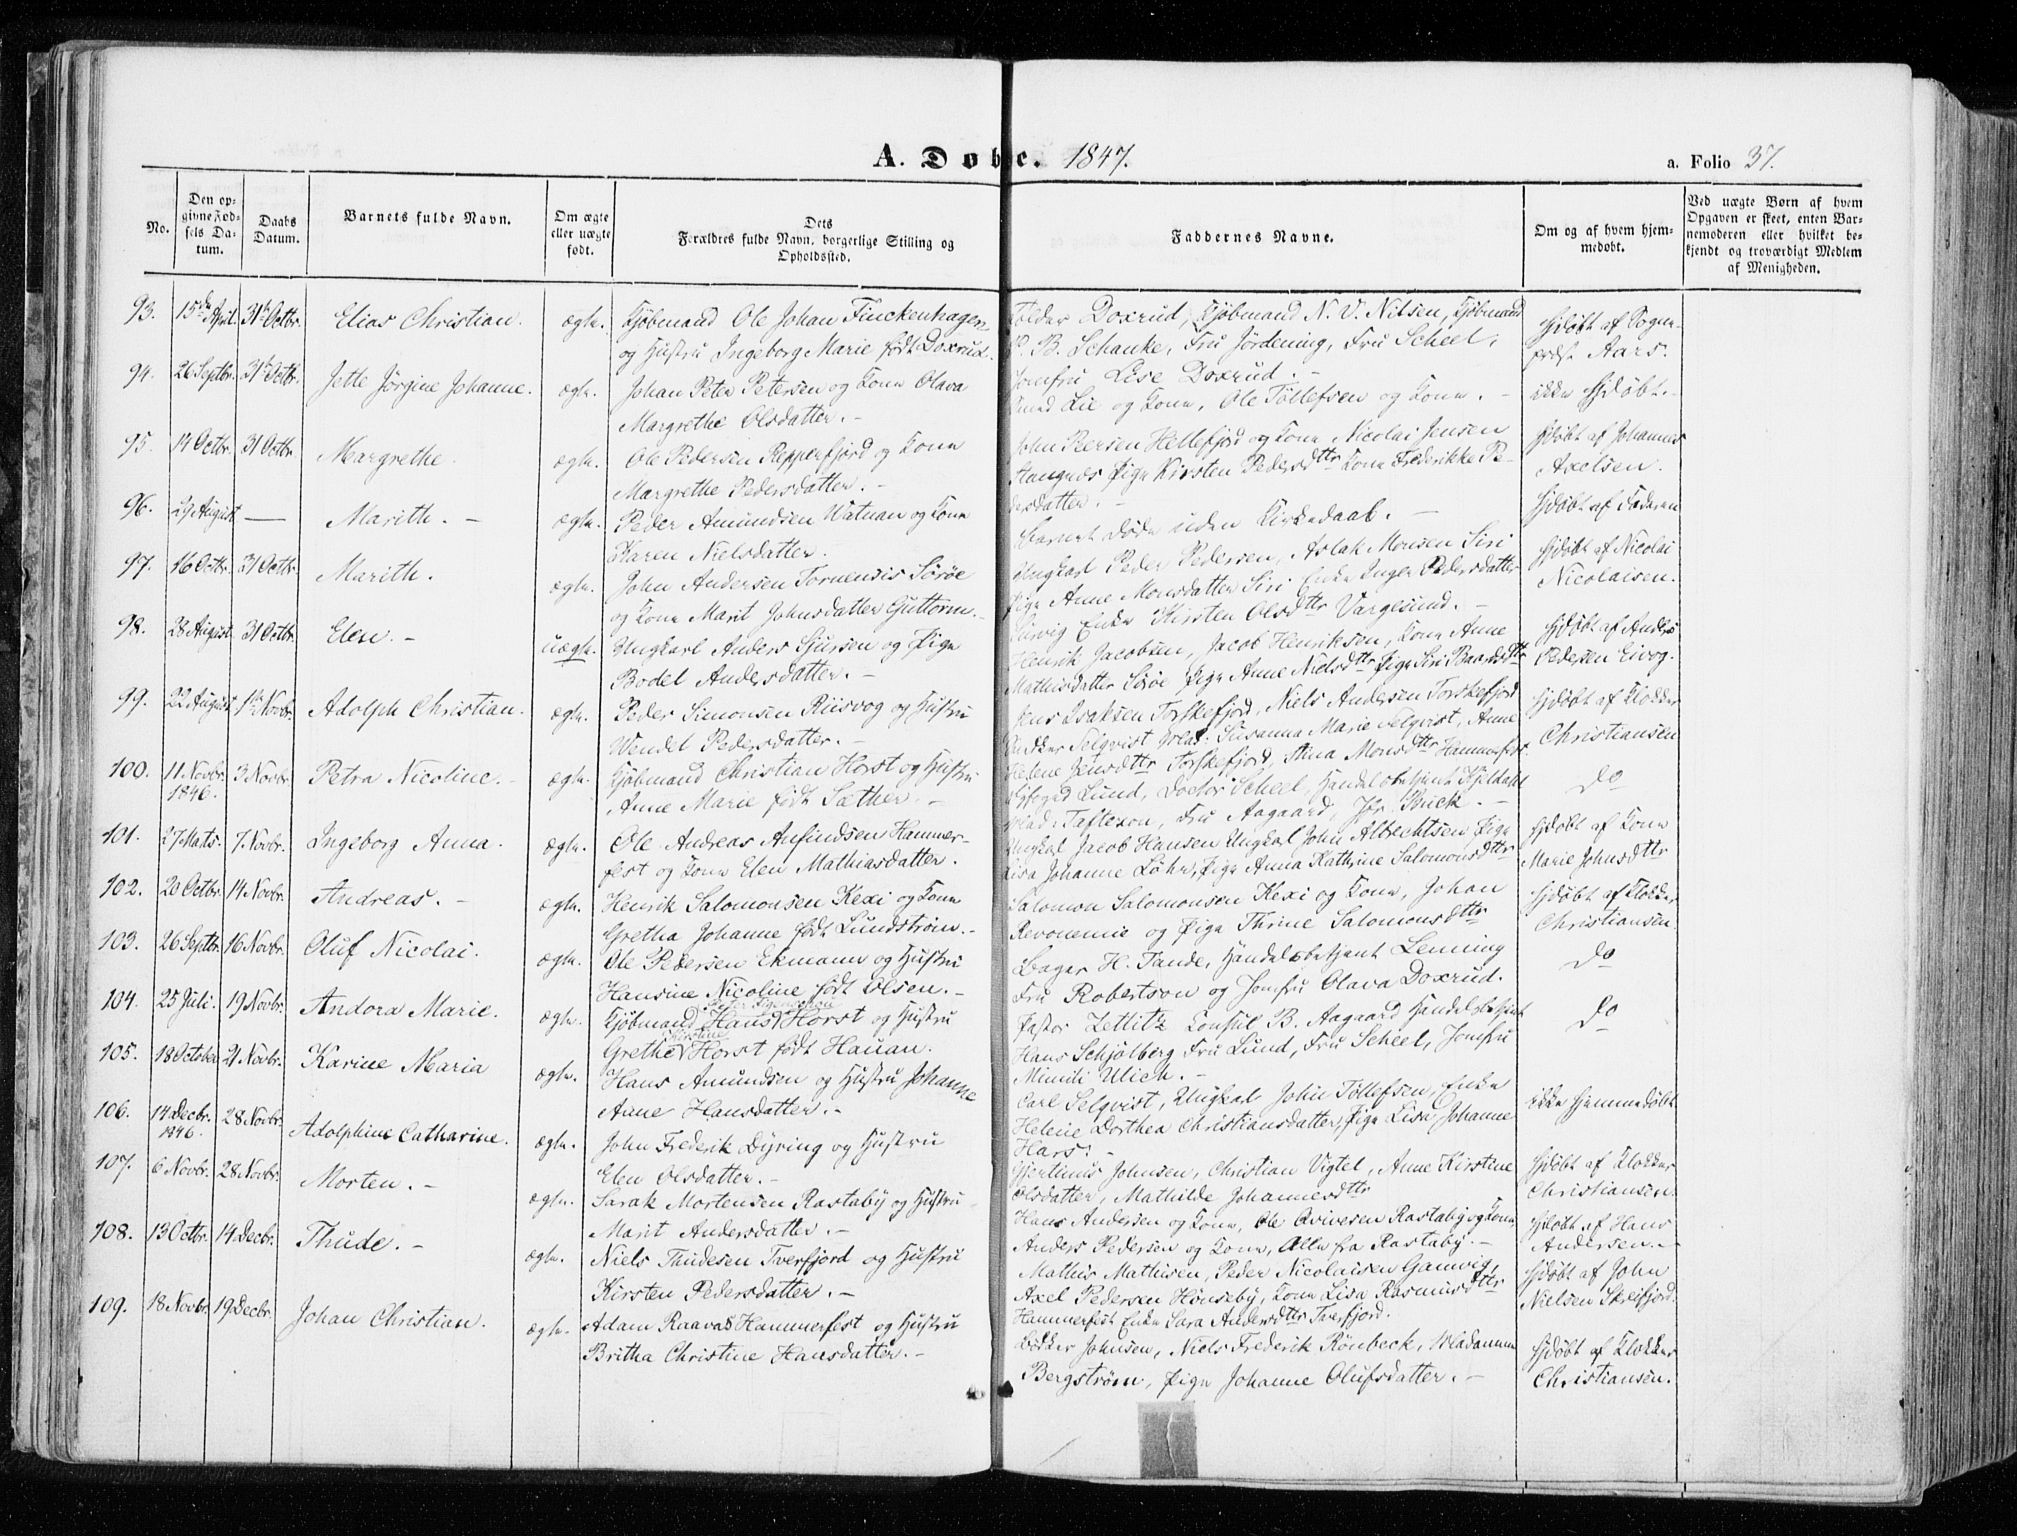 A. Døbte. 1847.
a. Folio 37.
No.
Den opgivne Fødsels Datum.
Daabs Datum.
Barnets fulde Navn.
Om ægte eller uægte født.
Dets Forældres fulde Navn, borgerlige Stilling og Opholdssted.
Faddernes Navne.
Om og af hvem hjemmedøbt.
Ved uægte Børn af hvem Opgaven er skeet, enten Barnemoderen eller hvilket bekjendt og troværdigt Medlem af Menigheden.
93. 15de April. 31te Octbr. Elias Christian. ægte. Kjøbmand Ole Johan Finckenhagen
og Hustru Ingeborg Marie født Doxrud.
Tolder Doxrud, Kjøbmand N. V. Nilsen, Kjøbmand
P. B. Schanke, Fru Jördening, Fru Scheel,
Jomfru Lise Doxrud. -
Hjdøbt af Sogne-
præst Aars.
94. 26 Septbr. 31te Octbr. Jette Jørgine Johanne. ægte. Johan Peter Petersen og Kone Olava
Margrethe Olsdatter. -
Knud Lie og Kone, Ole Töllefsen og Kone. -
ikke Hjdøbt. -
95. 14 Octbr. 31 Octbr. Margrethe. ægte. Ole Pedersen Repperfjord og Kone
Margrethe Pedersdatter. -
John Peersen Hellefjord og Kone Nicolai Jensen
Pige Kirsten Pedersdttr Kone Frederikke Pe-
dersdatter. -
Hjdøbt af Johannes
Axelsen.
96. 29 August — Marith. - ægte. Peder Amundsen Watnan og Kone
Karen Nielsdatter.
Barnet døde uden Kirkedaab. -
Hjdøbt af Faderen
97. 16 Octbr. 31 Octbr. Marith. ægte. John Andersen Tornensis Sörøe
og Kone Marit Johnsdatter Guttorm. -
Ungkarl Peder Pedersen, Aslak Monsen Siri
Pige Anne Monsdatter Siri Enke Inger Pedersdatter
Enke Kirsten Olsdttr Vargesund. -
Hjdøbt af Nicolai
Nicolaisen.
98. 28 August. 31 Octbr. Elen. - uægte. Ungkarl Anders Sjursen og Pige
Bodel Andersdatter. -
Henrik Jacobsen, Jacob Henriksen, Kone Anne
Mathisdatter Sörøe Pige Anne Nielsdttr Pige Siri Baardsdttr
Hjdøbt af Anders
Pedersen Eivog.
99. 22 August. 1te Novbr. Adolph Christian. ægte. Peder Simonsen Riisvog og Hustru
Wendel Pedersdatter. -
Jens Isaksen Torskefjord, Niels Andersen Torskefjord
Snekker Selqvist Mad: Susanna Marie Selqvist, Anne
Helene Jensdttr Torskefjord, Stina Monsdttr Hammerfest.
Hjdøbt af Klokker
Christiansen
100. 11 Novbr. 1846. 3 Novbr. Petra Nicoline. - ægte. Kjøbmand Christian Horst og Hustru
Anne Marie født Sæther. -
Byfoged Lund, Doctor Scheel, Handelsbetjent Kjeldahl
Mad: Taftezon, Fru Aagaard, Jfr. Buck. -
Do
101. 27 Mats. 7 Novbr. Ingeborg Anna. ægte. Ole Andreas Anfindsen Hammer-
fest og Kone Elen Mathiasdatter.
Ungkal Jacob Hansen Ungkal John Albrechtsen Pige
Lisa Johanne Löhr, Pige Anna Kathrine Salomonsdttr
Hjdøbt af Kone
Marie Johnsdttr
102. 20 Octbr. 14 Novbr. Andreas. - ægte. Henrik Salomonsen Kexi og Kone
Gretha Johanne født Lundström. -
Salomon Salomonsen Kexi og Kone, Johan
Revonemie og Pige Thrine Salomonsdttr
Hjdøbt af Klokker
Christiansen.
103. 26 Septbr. 16 Novbr. Oluf Nicolai. ægte. Ole Pedersen Ekmann og Hustru
Hansine Nicoline født Olsen. -
Bager H. Tande, Handelsbetjent Lenning
Fru Robertson og Jomfru Olava Doxrud.
Do
104. 25 Juli. 19 Novbr. Andora Marie. ægte. Kjøbmand Hans Horst og Hustru
Grethe Horst født Hauan.
Pastor Zetlitz Consul B. Aagaard Handelsbetjent
Hans Schjölberg Fru Lund, Fru Scheel, Jomfru
Mimili Ulich. -
Do
105. 18 October 21 Novbr. Karine Maria ægte. Hans Amundsen og Hustru Johanne
Anne Hansdatter. -
Carl Selqvist, Ungkal John Töllefsen, Enke
Helene Dorthea Christiansdatter, Pige Lisa Johanne
Hars: -
ikke hjemmedøbt
106. 14 Decbr. 1846. 28 Novbr. Adolphine Catharine. ægte. John Frederik Dyring og Hustru
Elen Olsdatter. -
Gjertinus Johnsen, Christian Vigtel, Anne Kirstine
Olsdatter, Mathilde Johannesdttr
Hjdøbt af Klokker
Christiansen.
107. 6 Novbr. 28 Novbr. Morten. - ægte. Sarak Mortensen Rastaby og Hustru
Marit Andersdatter. -
Hans Andersen og Kone, Ole Qvivesen Rastaby og Kone
Anders Pedersen og Kone, Alle fra Rastaby. -
Hjdøbt af Hans
Andersen. -
108. 13 Octbr. 14 Decbr. Thude. - ægte. Niels Thudesen Tverfjord og Hustru
Kirsten Pedersdatter. -
Mathis Mathisen, Peder Nicolaisen Gamvig,
Axel Pedersen Hönseby, Kone Lisa Rasmusdttr
Hammerfest Enke Sara Andersdttr Tverfjord.
Hjdøbt af John
Nielsen Skreifjord.
109. 18 Novbr. 19 Decbr. Johan Christian. ægte. Adam Raavas Hammerfest og Hustru
Britha Christine Hansdatter. -
Bødker Johnsen, Niels Frederik Rönbeck, Madamme
Bergström, Pige Johanne Olufsdatter. -
Hjdøbt af Klokker
Christiansen.